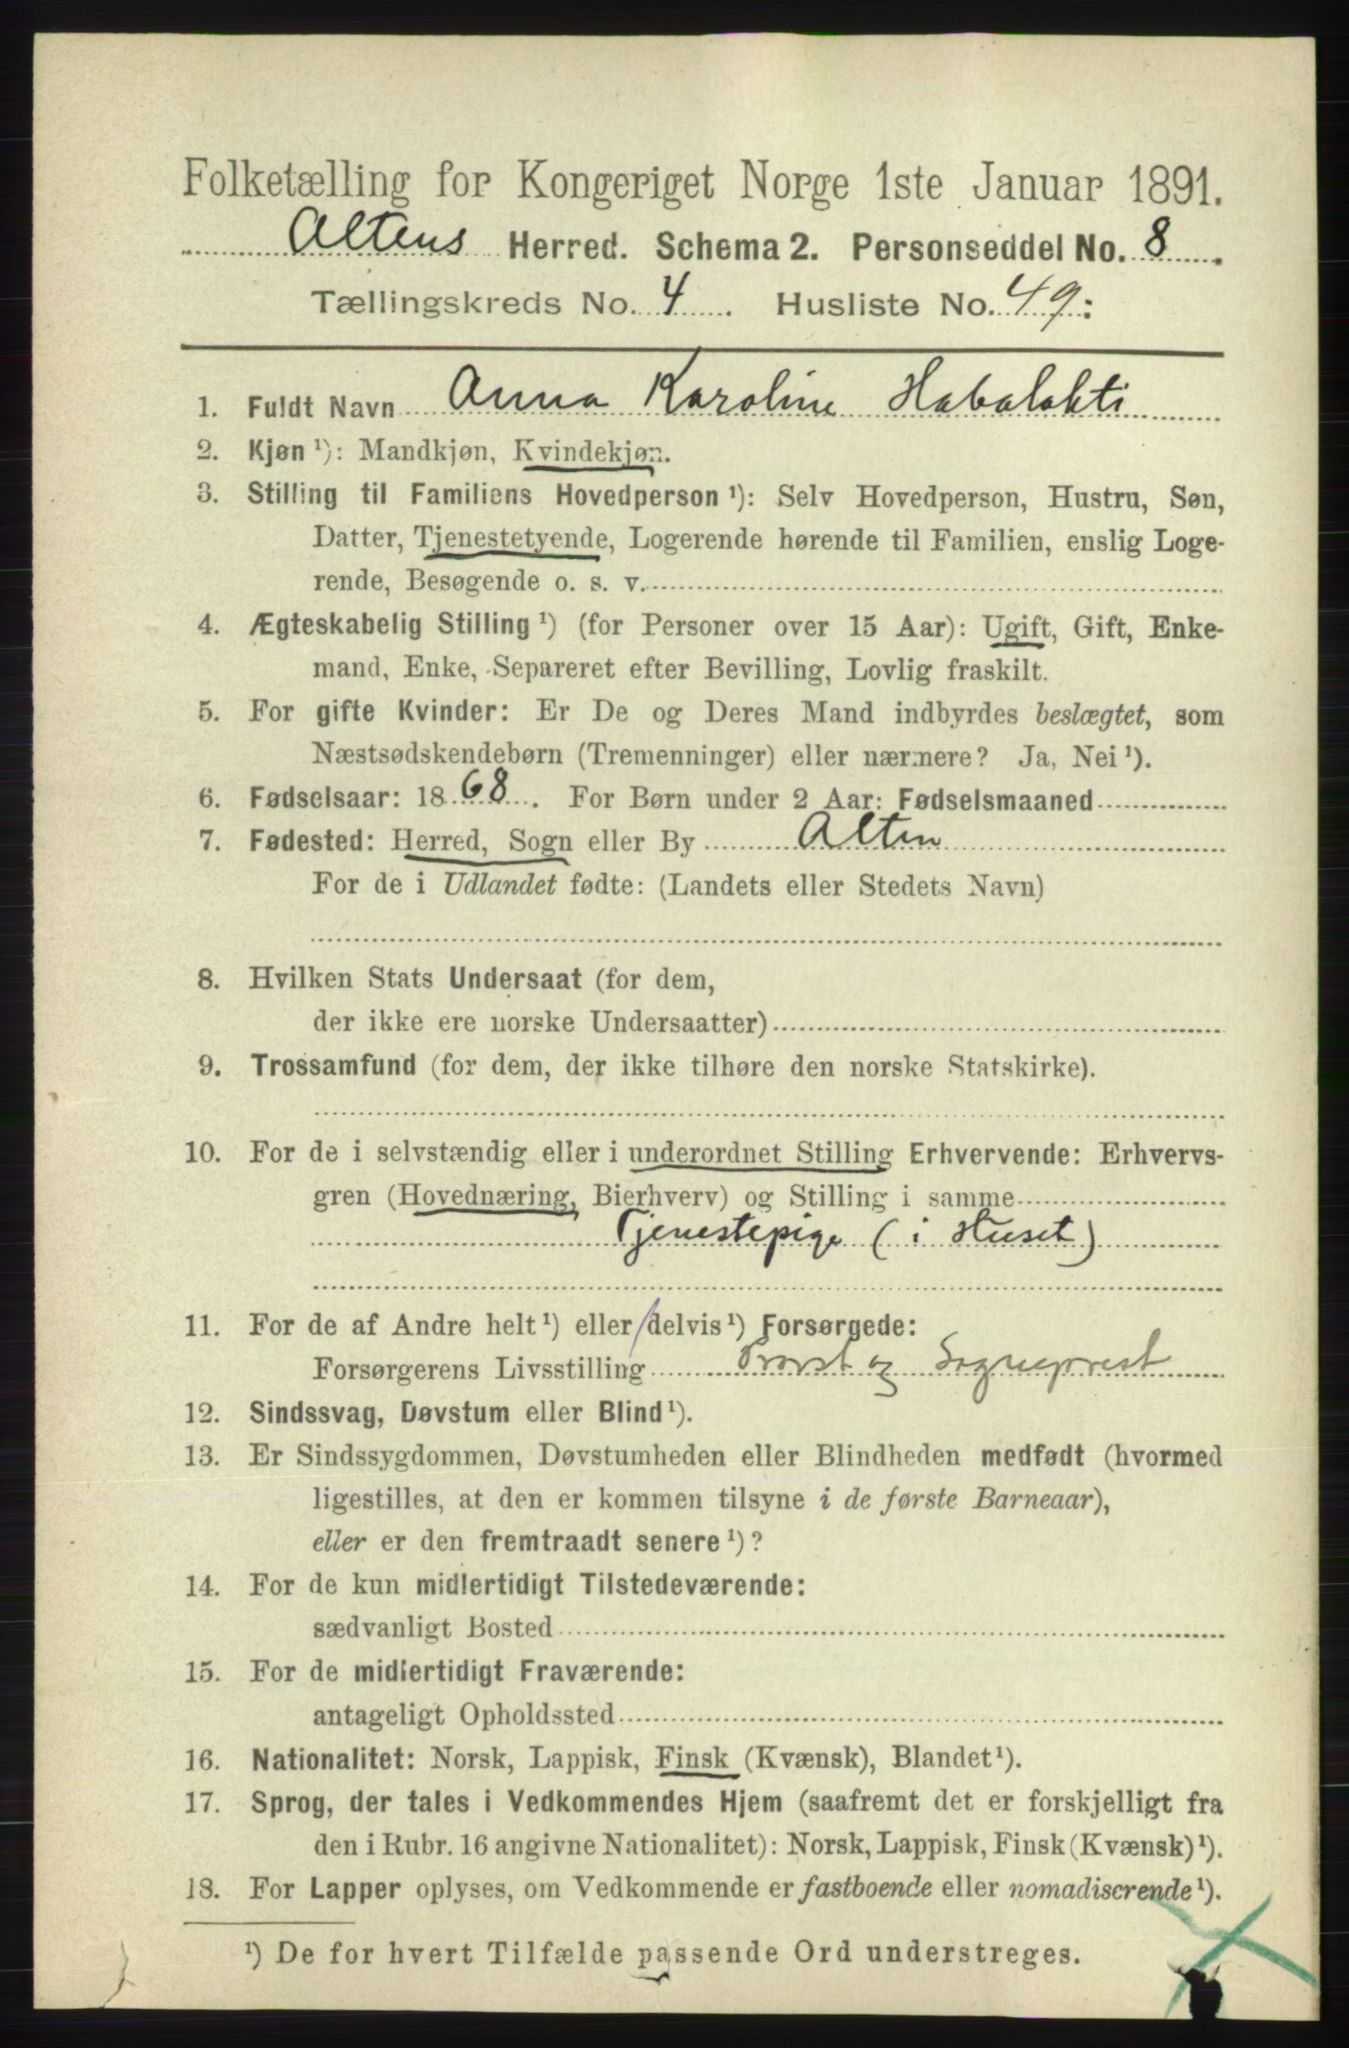 Folketælling for Kongeriget Norge 1ste Januar 1891.
Altens Herred. Schema 2. Personseddel No. 8.
Tællingskreds No. 4. Husliste No. 49:
1. Fuldt Navn Anna Karoline Habalakti
2. Kjøn ¹): Mandkjøn, Kvindekjøn.
3. Stilling til Familiens Hovedperson ¹): Selv Hovedperson, Hustru, Søn,
Datter, Tjenestetyende, Logerende hørende til Familien, enslig Loge-
rende, Besøgende o. s. v.
4. Ægteskabelig Stilling ¹) (for Personer over 15 Aar): Ugift, Gift, Enke-
mand, Enke, Separeret efter Bevilling, Lovlig fraskilt.
5. For gifte Kvinder: Er De og Deres Mand indbyrdes beslægtet, som
Næstsødskendebørn (Tremenninger) eller nærmere? Ja, Nei ¹).
6. Fødselsaar: 1868. For Børn under 2 Aar: Fødselsmaaned
7. Fødested: Herred, Sogn eller By Alten
For de i Udlandet fødte: (Landets eller Stedets Navn)
8. Hvilken Stats Undersaat (for dem,
der ikke ere norske Undersaatter)
9. Trossamfund (for dem, der ikke tilhøre den norske Statskirke).
10. For de i selvstændig eller i underordnet Stilling Erhvervende: Erhvervs-
gren (Hovednæring, Bierhverv) og Stilling i samme
Tjenestepige (i Huset)
11. For de af Andre helt ¹) eller delvis ¹) Forsørgede:
Forsørgerens Livsstilling Provst og Sogneprest
12. Sindssvag, Døvstum eller Blind ¹).
13. Er Sindssygdommen, Døvstumheden eller Blindheden medfødt (hvormed
ligestilles, at den er kommen tilsyne i de første Barneaar),
eller er den fremtraadt senere ¹)?
14. For de kun midlertidigt Tilstedeværende:
sædvanligt Bosted
15. For de midlertidigt Fraværende:
antageligt Opholdssted
16. Nationalitet: Norsk, Lappisk, Finsk (Kvænsk), Blandet ¹).
17. Sprog, der tales i Vedkommendes Hjem (saafremt det er forskjelligt fra
den i Rubr. 16 angivne Nationalitet): Norsk, Lappisk, Finsk (Kvænsk) ¹).
18. For Lapper oplyses, om Vedkommende er fastboende eller nomadiserende ¹).
¹) De for hvert Tilfælde passende Ord understreges.